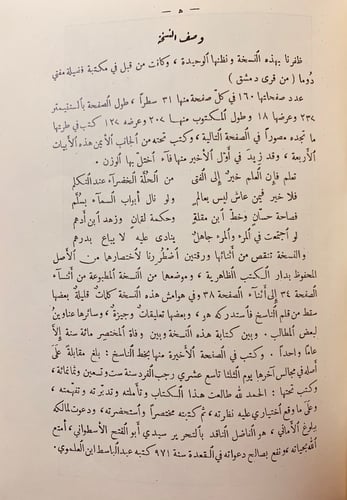 — ٥ —
وصف النسخة
ظفرنا بهذه النسخة ونظنها الوحيدة، وكانت من قبل في مكتبة فضيلة مفتي
دُوما (من قرى دمشق)
عدد صفحاتها ١٦٠ في كل صفحة منها ٣١ سطراً، طول الصفحة بالسنتيمتر
٢٣٧ وعرضها ١٨ وطول المكتوب منها ٢٠٧ وعرضه ١٢٧ كتب في طرتها
ما تجده مصوراً في الصفحة التالية، وكتب تحته من الجانب الأيمن هذه الأبيات
الأربعة، وقد زيدَ في أوّل الأخير منها فآء اختلّ بها الوزن.
تعلم فإن العلم خير إلى الفتى من الحُلَّة الخضرآء عند التكلم
فلا خير فيمن عاش ليس بعالم ولو نال أبواب السمآء بسُلَّم
فصاحة حسان وخط ابن مقلةٍ وحكمة لقمان وزهد ابن أدهم
لو اجتمعت في المرء والمرء جاهلٌ ينادى عليه لا يباع بدرهم
والنسخة تنقص من أثنائها ورقتين اضطُررنا لاختصارها من الأصل
المحفوظ بدار الكتب الظاهرية، وموضعها من النسخة المطبوعة من أثنآء
الصفحة ٣٤ إلى أثنآء الصفحة ٣٨ وفي هوامش هذه النسخة كلماتٌ قليلةٌ بعضها
سقط من قلم الناسخ فاستدركه هو، وبعضها تعليقات وجيزةٌ، وسائرها عناوين
لبعض المطالب. وبين كتابة هذه النسخة وبين وفاة المختصِر مائة سنة إلا
عاماً واحداً. وكتب في الصفحة الأخيرة منها بخط الناسخ: بلغ مقابلة على
أصله في مجالس آخرها يوم الثلثا تاسع عشري رجب الفرد سنة ست وتسعين وثمانمائة،
وكتب تحتها: الحمد لله طالعت هذا الكتاب وتأملته وتدبرته وتفهمته،
وعلى ما وقع اختياري عليه نظرته، ثم كتبته مختصراً واستحضرته، ودعوت لمالكه
بلوغ الأماني، هو الفاضل الناقد بالتحرير سيدي أبو الفتح الأسطواني، أمتع
الله بحياته، ونفع بصالح دعواته في القعدة سنة ٩٧١ كتبه عبد الباسط ابن العلموي.